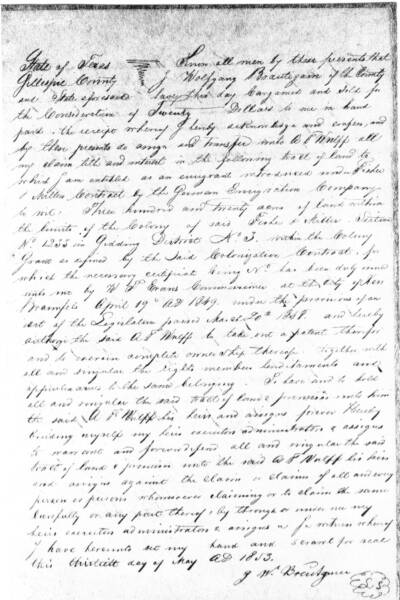 State of Texas Know all men by these presents that
Gillespie County I Wolfgang Brautigam of the County
and State aforesaid have this day bargained and sold for
the Consideration of Twenty Dollars to me in hand
paid the receipt whereof I hereby acknowledge and confess, and
by these presents do assign and transfer unto A F Wulff all
my claim title and interest in the following tract of land to
which I am entitled as an emigrant introduced under Fisher
& Miller Contract by the German Emigration Company
to wit: Three hundred and twenty acres of land within
the limits of the Colony of said Fisher & Miller Section
No 1233 in Grading District No 3. within the Colony
Grant as defined by the Said Colonization Contract, for
which the necessary certificate being No has been duly issued
unto me by Evans Commissioner at the city of New
Braunfels April 19th AD 1849. under the provisions of an
act of the Legislature passed 20th 1848. and hereby
authorize the said A F Wulff to take out a patent therefor
and to complete ownership thereof together with
all and singular the rights members hereditaments and
appurtenances to the same belonging. To have and to hold
all and singular the said tract of land & premises unto him
the said A F Wulff his heirs and assigns forever Hereby
binding myself my heirs executors administrators & assigns
to warrant and forever defend all and singular the said
tract of land & premises unto the said A F Wulff his heirs
and assigns against the claim or claims of all and every
person or persons whomsoever claiming or to claim the same
lawfully or any part thereof by through or under me my
heirs executors administrators & assigns In witness whereof
I have hereunto set my hand and scrawl for seal
this thirtieth day of May AD 1853.